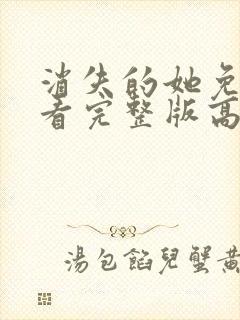 消失的她免
看完整版高
湯包餡兒蟹黃